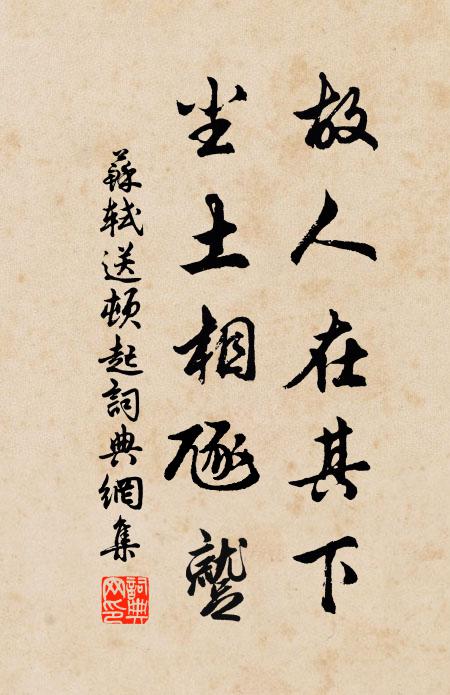 故人在其下
尘土相豗蹵
蘇軾送頓起詞典網集
詞典网印